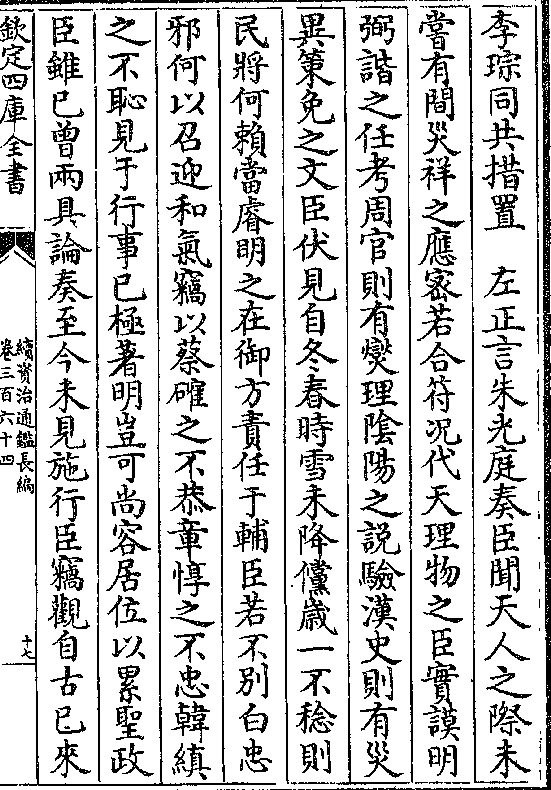 李琮同共措置　左正言朱光庭奏臣聞天人之際未
嘗有間災祥之應宻若合符况代天理物之臣實謨明
弼諧之任考周官則有爕理隂陽之說驗漢史則有災
異策免之文臣伏見自冬春時雪未降儻歳一不稔則
民將何賴當睿明之在御方責任于輔臣若不别白忠
邪何以召迎和氣竊以蔡確之不恭章惇之不忠韓縝
之不恥見于行事已極著明豈可尚容居位以累聖政
臣雖已曾兩具論奏至今未見施行臣竊觀自古已來
欽定四庫全書
續資治通鑑長編
卷三百六十四
十七